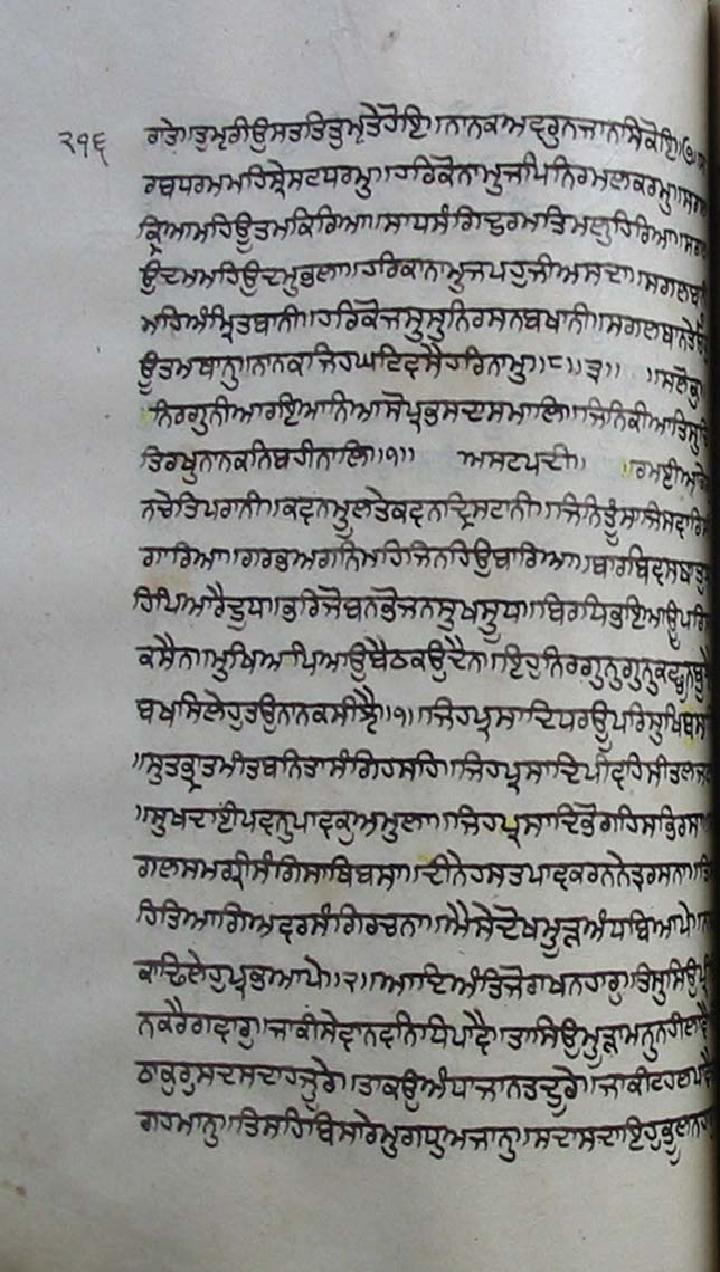 ੨੧੬
ਗਤੇ॥ਤੁਮ੍ਰੀਉਸਤਤਿਤੁਮ੍ਰਤੇਹੋਇ॥ਨਾਨਕਅਵਰੁਨਜਾਨਸਿਕੋਇ॥੭॥ਸ
ਰਬਧਰਮਮਹਿਸ੍ਰੇਸਟਧਰਮੁ॥ਹਰਿਕੋਨਾਮੁਜਪਿਨਿਰਮਲਕਰਮੁ॥ਸਗਲ
ਕ੍ਰਿਆਮਹਿਊਤਮਕਿਰਿਆ॥ਸਾਧਸੰਗਿਦੁਰਮਤਿਮਲੁਹਿਰਿਆ॥ਸਗਲ
ਉਦਮਮਹਿਉਦਮੁਭਲਾ॥ਹਰਿਕਾਨਾਮੁਜਪਹੁਜੀਅਸਦਾ॥ਸਗਲਬਾਨੀ
ਮਹਿਅੰਮ੍ਰਿਤਬਾਨੀ॥ਹਰਿਕੋਜਸੁਸੁਨਿਰਸਨਬਖਾਨੀ॥ਸਗਲਥਾਨਤੇਓਹੁ
ਊਤਮਥਾਨੁ॥ਨਾਨਕਜਿਹਘਟਿਵਸੈਹਰਿਨਾਮੁ॥੮॥੩॥ ॥ਸਲੋਕੁ
ਨਿਰਗੁਨੀਆਰਇਆਨਿਆਸੋਪ੍ਰਭੁਸਦਾਸਮਾਲਿ॥ਜਿਨਿਕੀਆਤਿਸੁਚੀ
ਤਿਰਖੁਨਾਨਕਨਿਬਹੀਨਾਲਿ॥੧॥ ਅਸਟਪਦੀ॥ ॥ਰਮਈਆਕੇਗੁ
ਨਚੇਤਿਪਰਾਨੀ॥ਕਵਨਮੂਲਤੇਕਵਨਦ੍ਰਿਸਟਾਨੀ॥ਜਿਨਿਤੂੰਸਾਜਿਸਵਾਰਿਸੀ
ਗਾਰਿਆ॥ਗਰਭਅਗਨਿਮਹਿਜਿਨਹਿਉਬਾਰਿਆ॥ਬਾਰਬਿਵਸਥਾਤੁਝ
ਹਿਪਿਆਰੈਦੁਧ॥ਭਰਿਜੋਬਨਭੋਜਨਸੁਖਸੂਧ॥ਬਿਰਧਿਭਇਆਊਪਰਿ
ਕਸੈਨਾਮੁਖਿਅਪਿਆਉਬੈਠਕਉਦੈਨ॥ਇਹੁਨਿਰਗੁਨੁਗੁਨੁਕਛੂਨਬੂਝੈ
ਬਖਸਿਲੇਹੁਤਉਨਾਨਕਸੀਝੈ॥੧॥ਜਿਹਪ੍ਰਸਾਦਿਧਰਊਪਰਿਸੁਖਿਬਸਹਿ
॥ਸੁਤਭ੍ਰਾਤਮੀਤਬਨਿਤਾਸੰਗਿਹਸਹਿ॥ਜਿਹਪ੍ਰਸਾਦਿਪੀਵਹਿਸੀਤਲਜਲਾ
॥ਸੁਖਦਾਈਪਵਨੁਪਾਵਕੁਅਮੁਲਾ॥ਜਿਹਪ੍ਰਸਾਦਿਭੋਗਹਿਸਭਿਰਸਾ
ਗਲਸਮਗ੍ਰੀਸੰਗਿਸਾਥਿਬਸਾ॥ਦੀਨੇਹਸਤਪਾਵਕਰਨਨੇਤ੍ਰਰਸਨਾ॥ਤਿ
ਹਿਤਿਆਗਿਅਵਰਸੰਗਿਰਚਨਾ॥ਐਸੇਦੋਖਮੂੜਅੰਧਬਿਆਪੇ॥ਨਾ
ਕਾਢਿਲੇਹੁਪ੍ਰਭਆਪੇ॥੨॥ਆਦਿਅੰਤਿਜੋਰਾਖਨਹਾਰੁ॥ਤਿਸੁਸਿਉਪ੍ਰੀ
ਨਕਰੈਗਵਾਰੁ॥ਜਾਕੀਸੇਵਾਨਵਨਿਧਿਪਾਵੈ॥ਤਾਸਿਉਮੂੜਾਮਨੁਨਹੀਲਾਵੈ
ਠਾਕੁਰੁਸਦਸਦਾਹਜੂਰੇ॥ਤਾਕਉਅੰਧਾਜਾਨਤਦੂਰੇ॥ਜਾਕੀਟਹਲਪਾਵੈ
ਗਹਮਾਨੁ॥ਤਿਸਹਿਬਿਸਾਰੇਮੁਗਧੁਅਜਾਨੁ॥ਸਦਾਸਦਾਇਹੁਭੂਲਨਹਾ